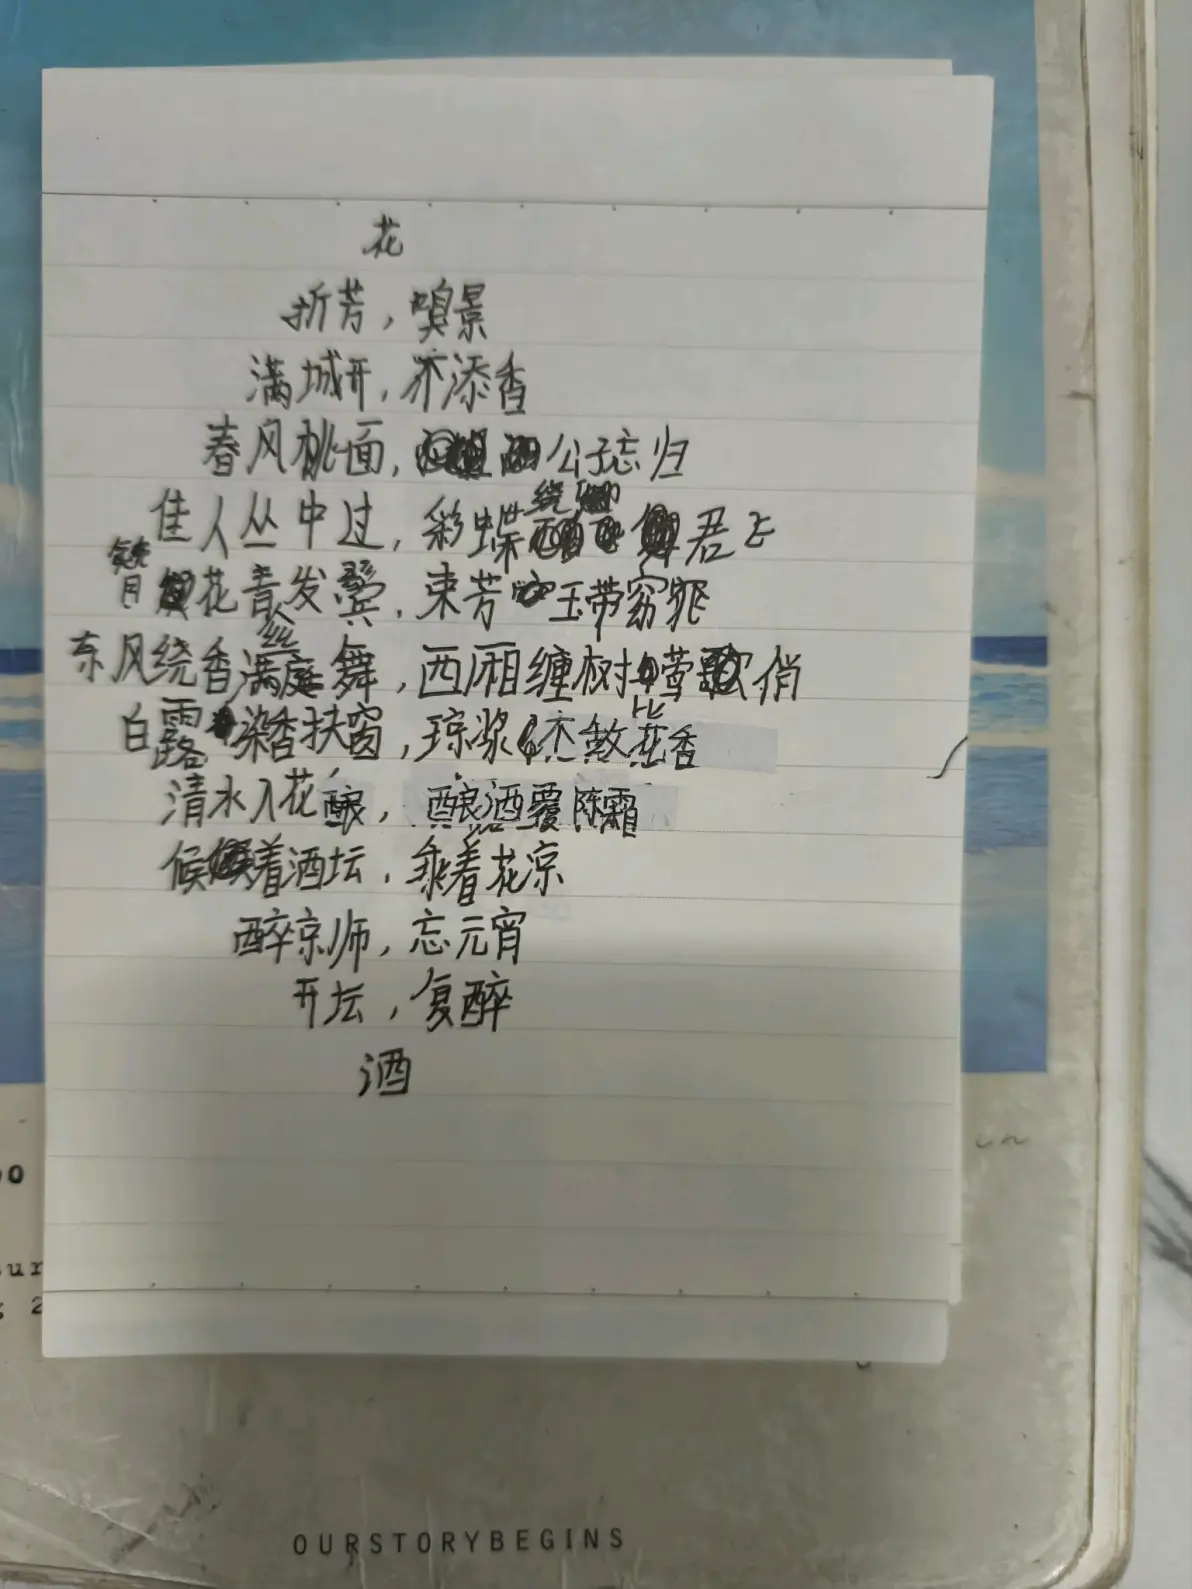 花
折芳，嗅景
满城开，亦添香
春风桃面，公子忘归
佳人丛中过，彩蝶绕君飞
簪花青丝发鬓，束芳玉带窈窕
东风绕香满庭舞，西厢缠树莺俏
白露染香扶窗，琼浆不敌花香
清水入花酿，酿酒覆陈霜
候着酒坛，乘着花凉
醉京师，忘元宵
开坛，复醉
酒
OURSTORYBEGINS